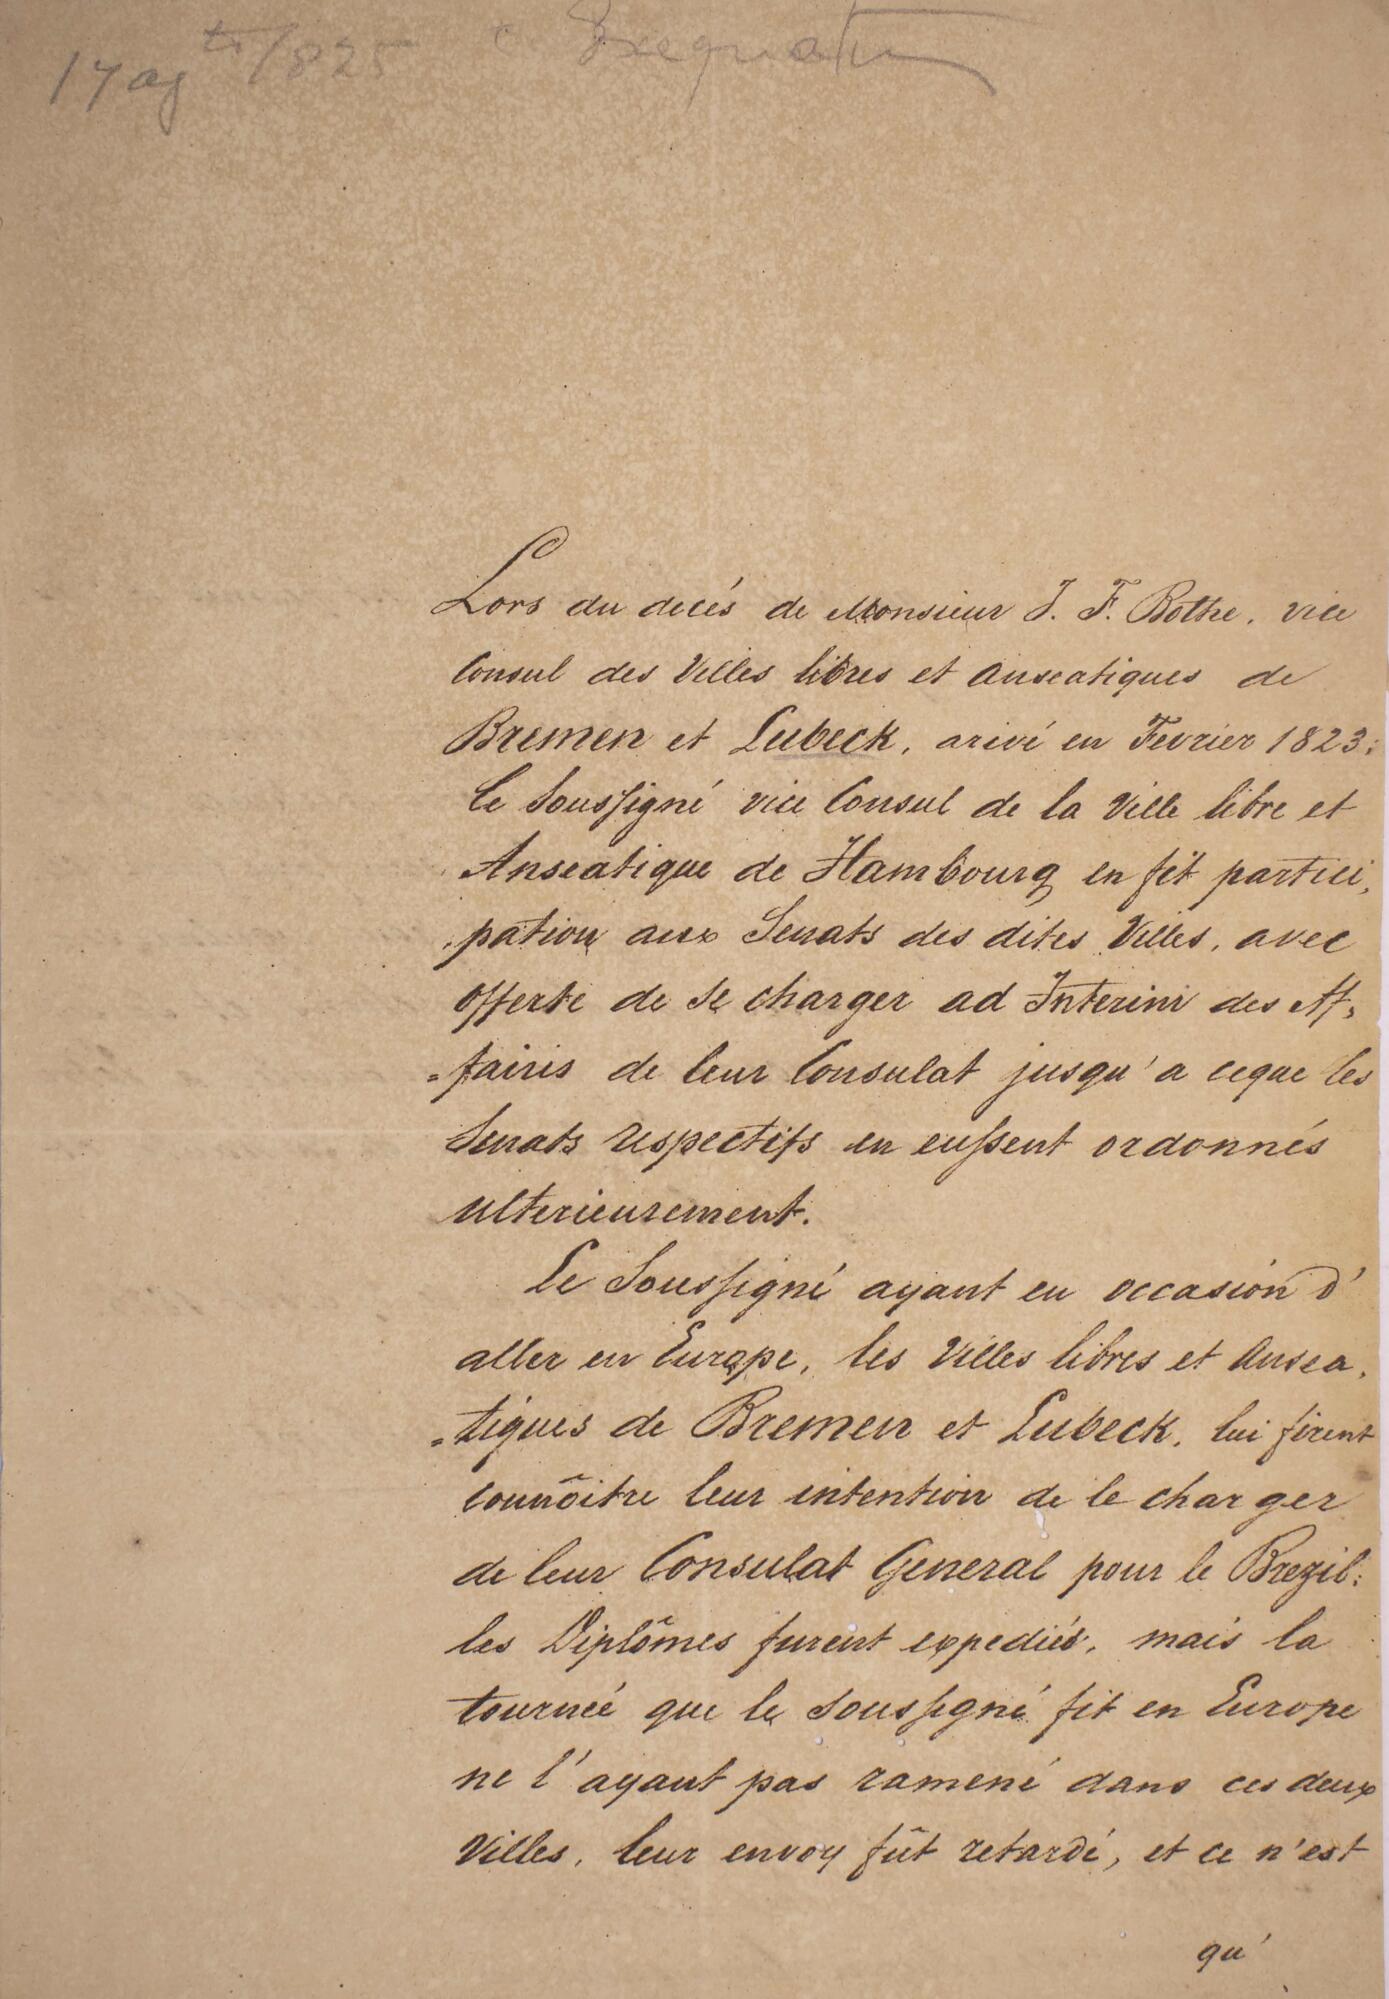 17 ag to 1825 c. Exequatur
Lors du decés de Monsieur J. F. Bothe, vice
Consul des Villes libres et Anseatiques de
Bremen et Lubeck, arivé en Fevrier 1823:
le Soussigné vice Consul de la Ville libre et
Anseatique de Hambourg en fit partici,
,pation aux Senats des dites Villes, avec
offerte de se charger ad Interim des Af,
=faires de leur Consulat jusqu'a ceque les
Senats respectifs en eussent ordonnés
ulterieurement.
Le Soussigné ayant eu occasion d'
aller en Europe, les Villes libres et Ansea,
=tiques de Bremen et Lubeck, lui firent
connôitre leur intention de le charger
de leur Consulat General pour le Brezil:
les Diplômes furent expediés, mais la
tourneé que le soussigné fit en Europe
ne l'ayant pas ramené dans ces deux
Villes, leur envoy fût retardé, et ce n'est
qu'